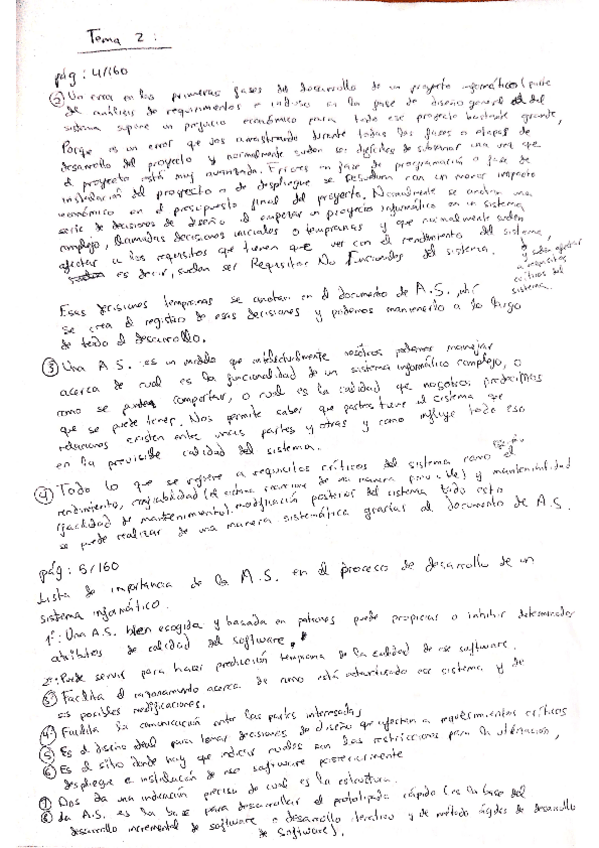 Tema 2:
pág: 4/160
② Un error en las primeras fases del desarrollo de un proyecto informático (parte
del análisis de requerimientos e incluso en la fase de diseño general del
sistema supone un prejuicio económico para todo ese proyecto bastante grande,
Porque es un error que vas arrastrando durante todas las fases o etapas de
desarrollo del proyecto y normalmente suelen ser difíciles de subsanar una vez que
el proyecto está muy avanzado. Errores en fase de programación o fase de
instalación del proyecto o de despliegue se resuelven con un menor impacto
económico en el presupuesto final del proyecto. Normalmente se anotan una
serie de decisiones de diseño al empezar un proyecto informático en un sistema
complejo, llamadas decisiones iniciales o tempranas y que normalmente suelen
afectar a los requisitos que tienen que ver con el rendimiento del sistema,
es decir, suelen ser Requisitos No Funcionales del sistema.
y suelen afectar
a requisitos
críticos del
sistema.
Esas decisiones tempranas se anotan en el documento de A.S., ahí
se crea el registro de esas decisiones y podemos mantenerlo a lo largo
de todo el desarrollo.
③ Una A.S. es un modelo que intelectualmente nosotros podemos manejar
acerca de cual es la funcionalidad de un sistema informático complejo, o
como se puede comportar, o cual es la calidad que nosotros predecimos
que se puede tener. Nos permite saber que partes tiene el sistema que
relaciones existen entre unas partes y otras y como influye todo eso
en la previsible calidad del sistema.
④ Todo lo que se refiere a requisitos críticos del sistema como el
rendimiento, confiabilidad (de una manera) y mantenibilidad
(facilidad de mantenimiento), modificación posterior del sistema todo esto
se puede realizar de una manera sistemática gracias al documento de A.S.
pág: 5/160
Lista de importancia de la A.S. en el proceso de desarrollo de un
sistema informático.
1º: Una A.S. bien escogida y basada en patrones puede propiciar o inhibir determinados
atributos de calidad del software.
2º: Puede servir para hacer predicción temprana de la calidad de ese software.
③ Facilita el razonamiento acerca de como está estructurado ese sistema y de
sus posibles modificaciones.
④ Facilita la comunicación entre las partes interesadas
⑤ Es el diseño ideal para tomar decisiones de diseño que afectan a requerimientos críticos
⑥ Es el sitio donde hay que indicar cuales son las restricciones para la utilización,
despliegue e instalación de ese software posteriormente
⑦ Nos da una indicación precisa de cual es la estructura.
⑧ La A.S. es la base para desarrollar el prototipado rápido (es la base del
desarrollo incremental de software o desarrollo iterativo y de método ágiles de desarrollo
de software).